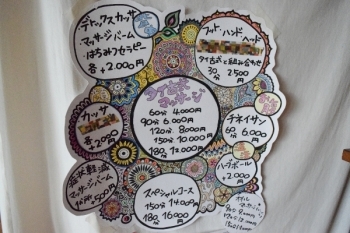 ・デトックスカッサ
・マッサージバーム
・はちみつセラピー
各 +2.000円
フット・ハンド・ヘッド
タイ古式と組み合わせ
30分 2.500
タイ古式
マッサージ
60分 4.000円
90分 6.000円
120分 8.000円
150分 10.000円
180分 12.000円
カッサ
各 +2000
チネイザン
60分 6.000円
ハーブボール
+2.000円
症状軽減
マッサージバーム
スペシャルコース
150分 14.000円
180分 16.000円
オイル